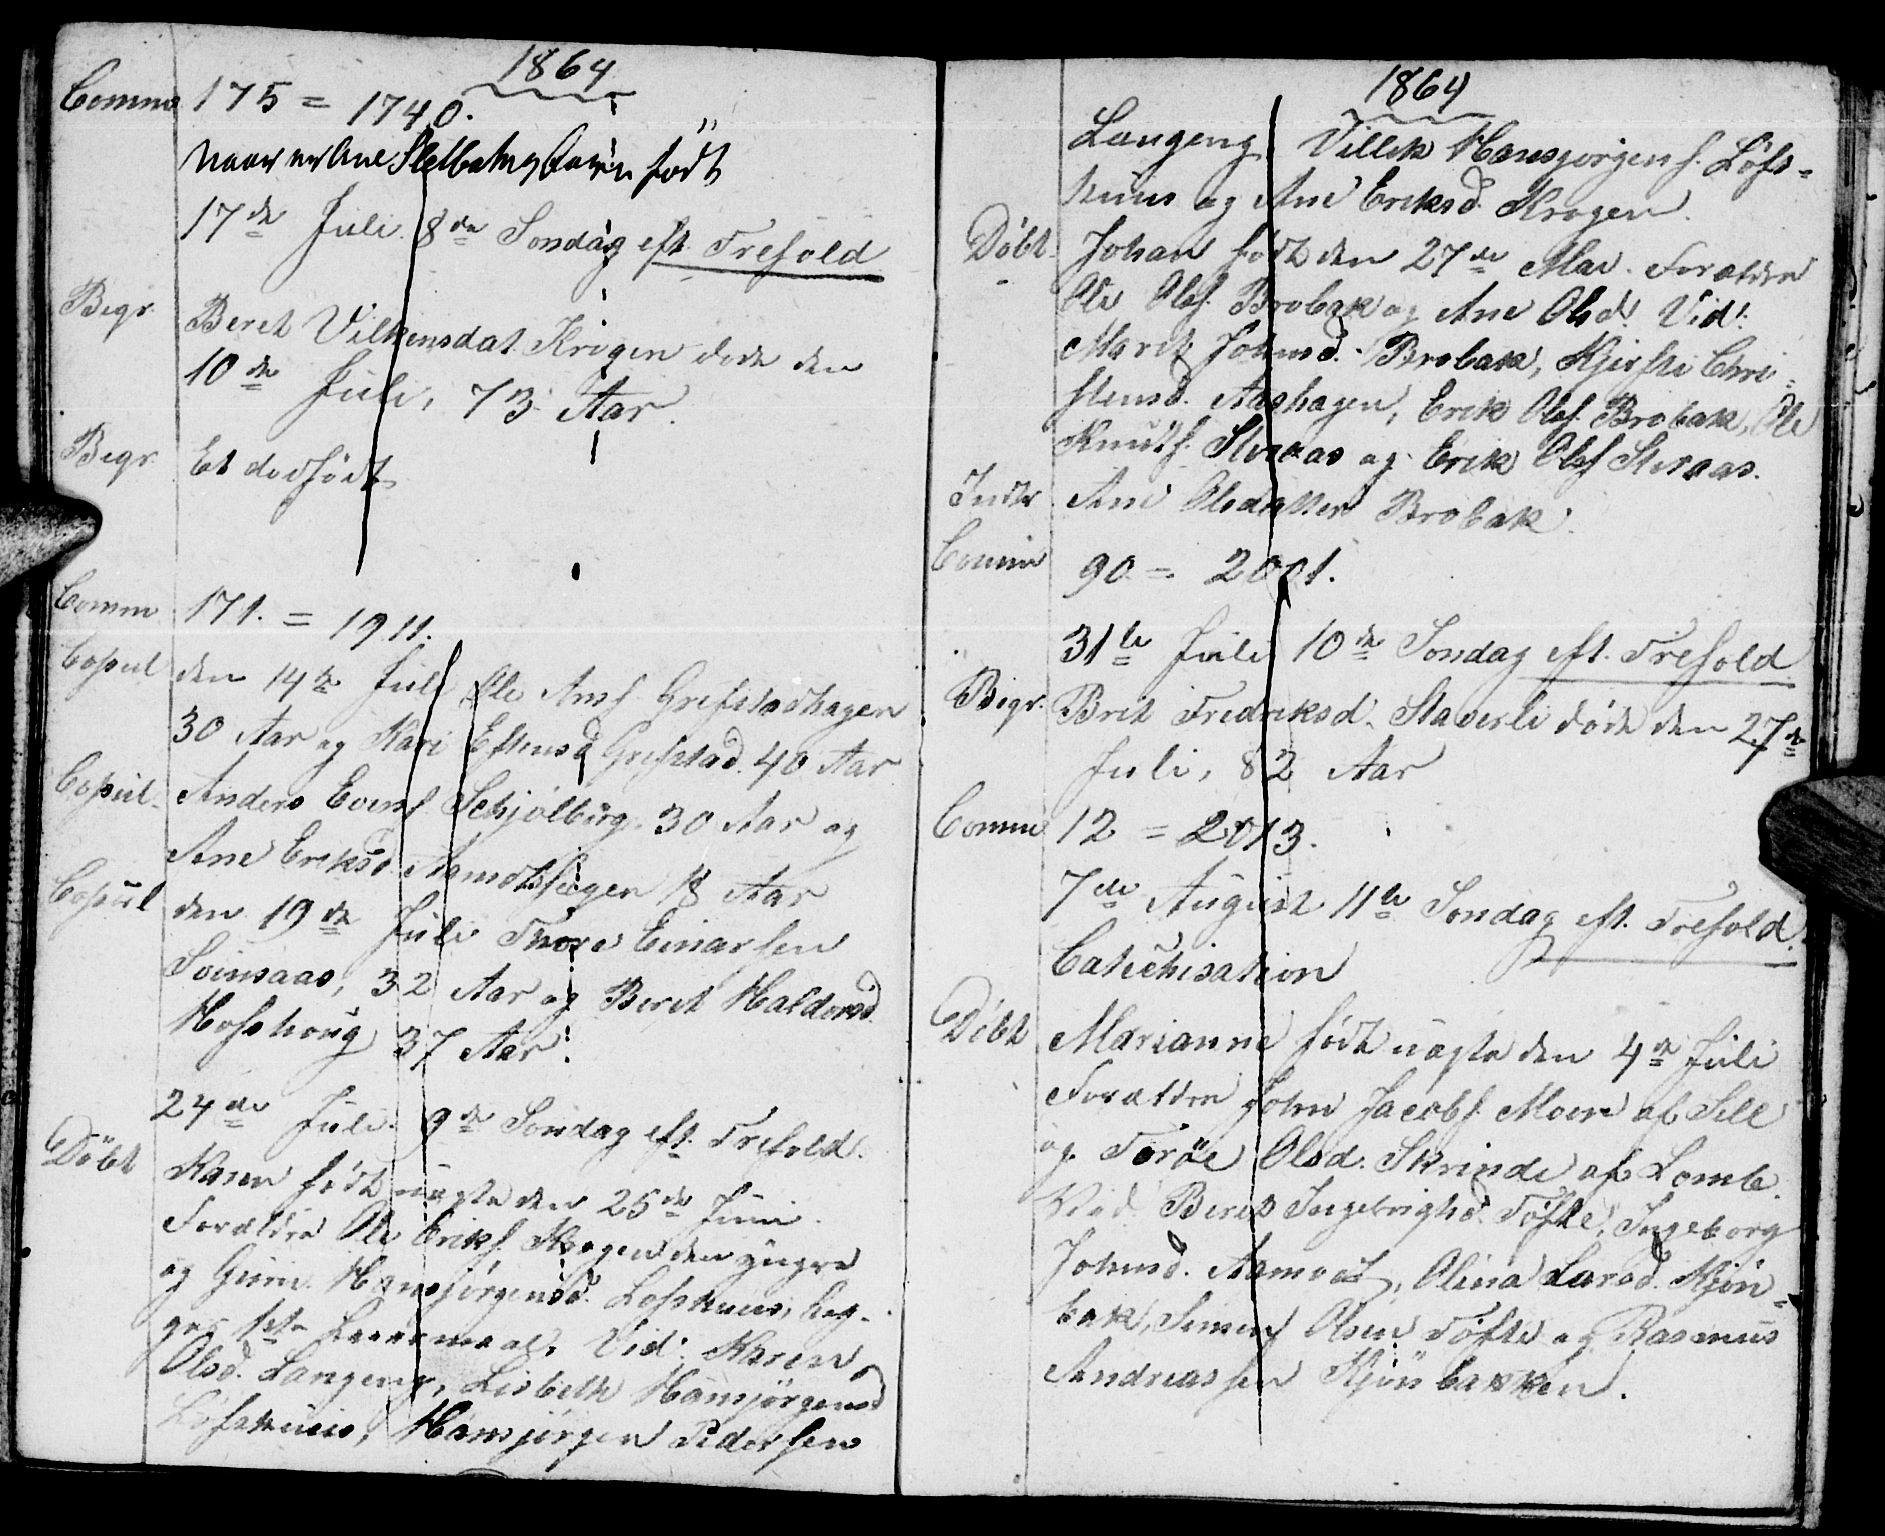 1864
Comm 175 = 1740.
Naar er Ane født
17de Juli. 8de Søndag eft. Trefold
Begr. Beret Vilkensdat. Krigen døde den
10de Juli, 73 Aar.
Begr. Et dødfødt
Comm 171. = 1911.
Copul den 14de Juli Ole Ams. Grefstadhagen
30 Aar og Kari Estensd. Grefstad. 40 Aar
Copul. Anders Evens. Schjølberg. 30 Aar og
Ane Eriksd. 18 Aar
Copul den 19de Juli Thore Einarsen
Svinsaas, 32 Aar og Beret Haldorsd.
Hofshoug 37 Aar.
24de Juli. 9de Søndag eft. Trefold.
Døbt Karen født uægte den 25de Juni.
Forældre Ole Eriks. Krogen den yngre
og Guru Hansjørgensd. Løfshuus, beg-
ges 1ste Leiermaal. Vid: Karen
Olsd. Langeng, Lisbeth Hansjørgensd
Løfshuus, Hansjørgen Pedersen
1864
Langeng, Villek Hansjørgens. Løfs-
huus og Ane Eriksd. Krogen.
Døbt. Johan født den 27de Mai. Forældre
Ole Ols. Brobak og Ane Olsd. Vid:
Marit Johnsd. Brobak, Kjersti Chri-
stensd. Aashagen, Erik Ols. Brobak, Ole
Knuts. Steraas og Erik Ols. Steraas.
Indtr Ane Olsdatter Brobak.
Comm 90 = 2001.
31te Juli 10de Søndag eft. Trefold
Begr. Bret Fredriksd. Staverli døde den 27de
Juli, 82 Aar
Comm 12 = 2013.
7de August 11te Søndag eft. Trefold.
Catechisation
Døbt Marianne født uægte den 4de Juli
Forældre John Jacobs. Moen af Sell
og Torøe Olsd. Skrinde af Lomb.
Vid Beret Ingebrigtsd. Tøfte, Ingeborg
Johnsd. Aamodt, Olina Larsd. Kjøn-
bak, Simen Olsen Tøfte og Rasmus
Andreassen Kjønbakken.